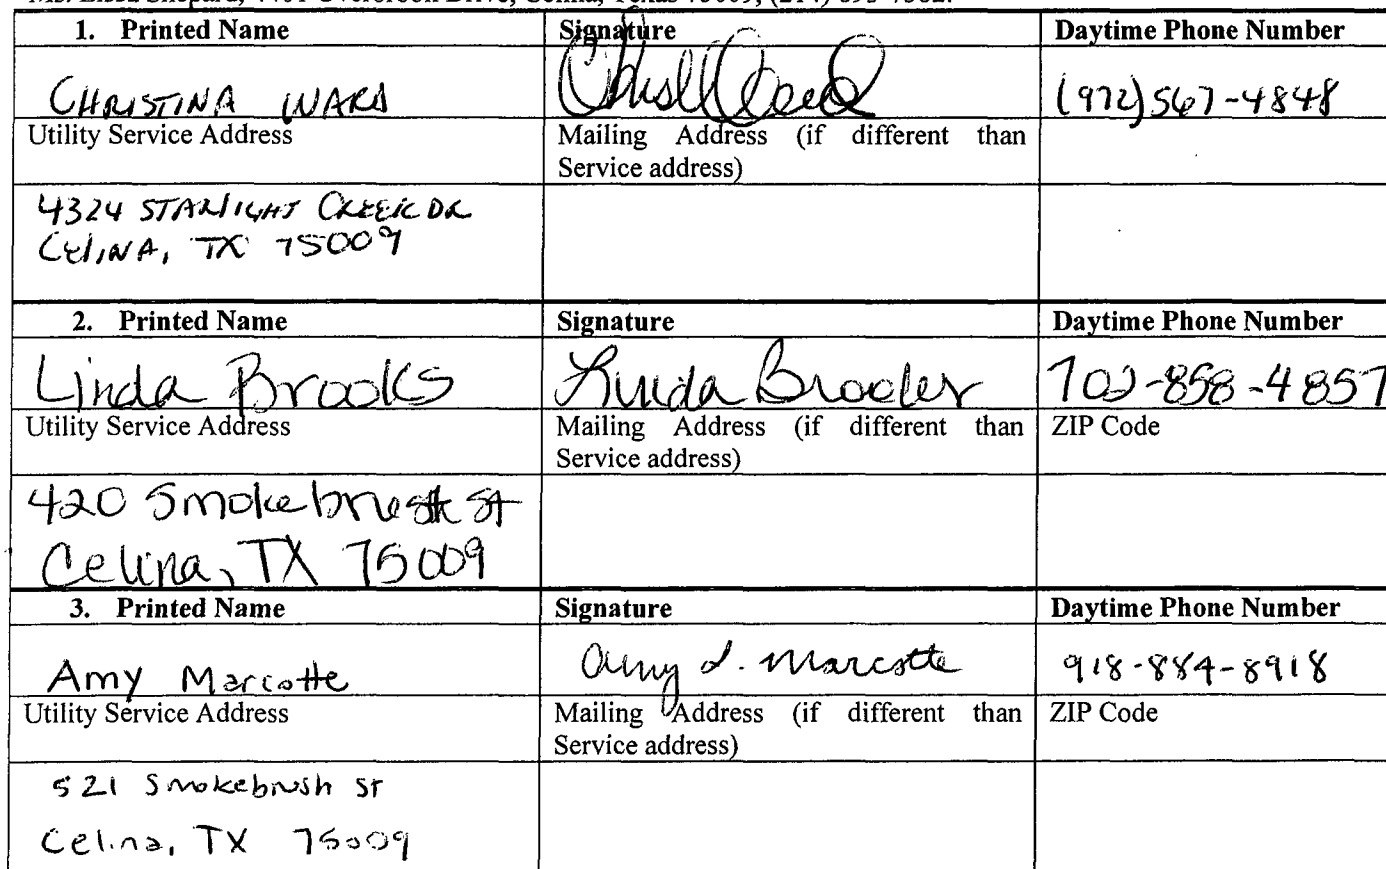 1. Printed Name Signature Daytime Phone Number
CHRISTINA WARD (972) 567-4848
Utility Service Address Mailing Address (if different than
Service address)
4324 STARLIGHT CREEK DR
CELINA, TX 75009
2. Printed Name Signature Daytime Phone Number
Linda Brooks Linda Brooks 702-858-4857
Utility Service Address Mailing Address (if different than ZIP Code
Service address)
420 Smokebrush St
Celina, TX 75009
3. Printed Name Signature Daytime Phone Number
Amy Marcotte Amy L. Marcotte 918-884-8918
Utility Service Address Mailing Address (if different than ZIP Code
Service address)
521 Smokebrush St
Celina, TX 75009